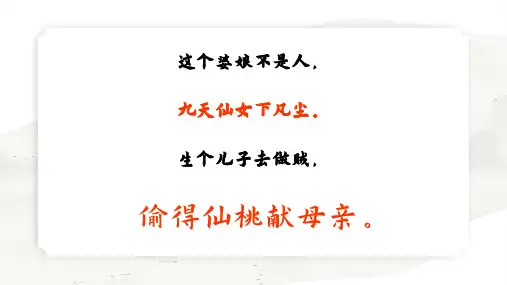 这个婆娘不是人，
九天仙女下凡尘。
生个儿子去做贼，
偷得仙桃献母亲。